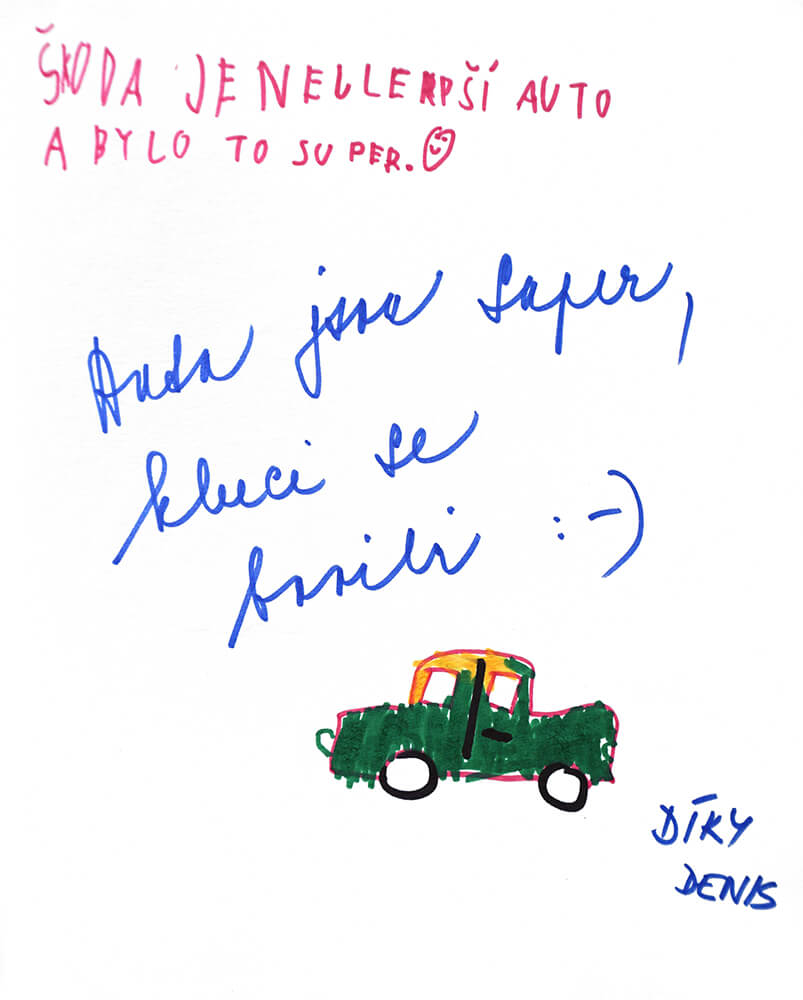 ŠKODA JE NEJLEPŠÍ AUTO
A BYLO TO SUPER.
Auta jsou super,
kluci se
bavili :-)
DÍKY
DENIS